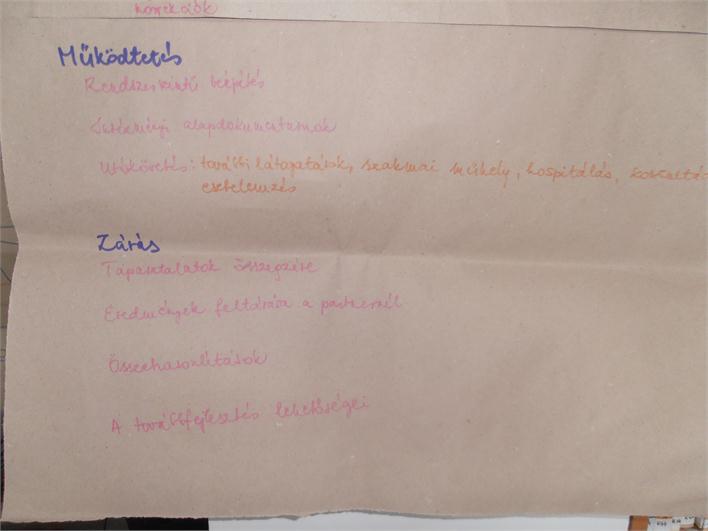 Működtetés
Rendszerszintű beépítés
Intézményi alapdokumentumok
Utókövetés: további látogatások, szakmai műhely, hospitálás,
esetelemzés
Zárás
Tapasztalatok összegzése
Eredmények feltárása a partnernél
Összehasonlítások
A továbbfejlesztés lehetőségei